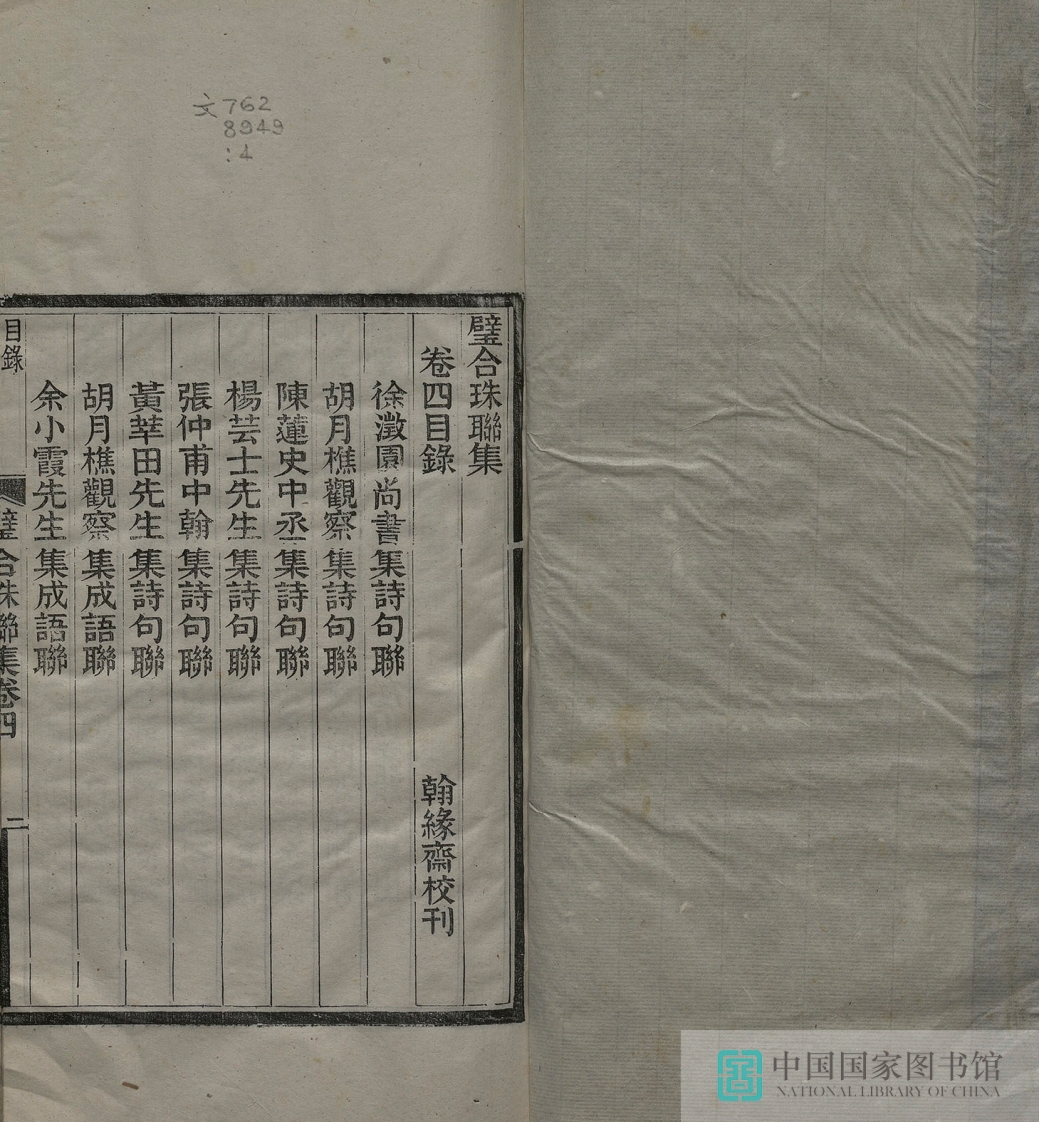 文762
8949
:4
璧合珠聯集
卷四目錄 翰緣齋校刊
徐澂園尚書集詩句聯
胡月樵觀察集詩句聯
陳蓮史中丞集詩句聯
楊芸士先生集詩句聯
張仲甫中翰集詩句聯
黃莘田先生集詩句聯
胡月樵觀察集成語聯
余小霞先生集成語聯
目錄 璧合珠聯集卷四 二
中国国家图书馆
NATIONAL LIBRARY OF CHINA